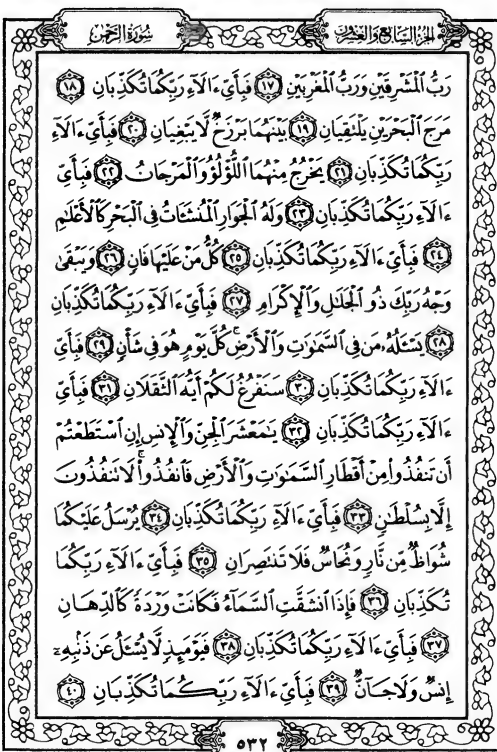 الجزء السابع والعشرون
سُورَةُ الرَّحْمَٰن
رَبُّ ٱلْمَشْرِقَيْنِ وَرَبُّ ٱلْمَغْرِبَيْنِ ١٧ فَبِأَيِّ ءَالَآءِ رَبِّكُمَا تُكَذِّبَانِ ١٨
مَرَجَ ٱلْبَحْرَيْنِ يَلْتَقِيَانِ ١٩ بَيْنَهُمَا بَرْزَخٌ لَّا يَبْغِيَانِ ٢٠ فَبِأَيِّ ءَالَآءِ
رَبِّكُمَا تُكَذِّبَانِ ٢١ يَخْرُجُ مِنْهُمَا ٱللُّؤْلُؤُ وَٱلْمَرْجَاتُ ٢٢ فَبِأَيِّ
ءَالَآءِ رَبِّكُمَا تُكَذِّبَانِ ٢٣ وَلَهُ ٱلْجَوَارِ ٱلْمُنشَـَٔاتُ فِى ٱلْبَحْرِ كَٱلْأَعْلَٰمِ
٢٤ فَبِأَيِّ ءَالَآءِ رَبِّكُمَا تُكَذِّبَانِ ٢٥ كُلُّ مَنْ عَلَيْهَا فَانٍ ٢٦ وَيَبْقَىٰ
وَجْهُ رَبِّكَ ذُو ٱلْجَلَٰلِ وَٱلْإِكْرَامِ ٢٧ فَبِأَيِّ ءَالَآءِ رَبِّكُمَا تُكَذِّبَانِ
٢٨ يَسْـَٔلُهُۥ مَن فِى ٱلسَّمَٰوَٰتِ وَٱلْأَرْضِ ۚ كُلَّ يَوْمٍ هُوَ فِى شَأْنٍ ٢٩ فَبِأَيِّ
ءَالَآءِ رَبِّكُمَا تُكَذِّبَانِ ٣٠ سَنَفْرُغُ لَكُمْ أَيُّهَ ٱلثَّقَلَانِ ٣١ فَبِأَيِّ
ءَالَآءِ رَبِّكُمَا تُكَذِّبَانِ ٣٢ يَٰمَعْشَرَ ٱلْجِنِّ وَٱلْإِنسِ إِنِ ٱسْتَطَعْتُمْ
أَن تَنفُذُوا۟ مِنْ أَقْطَارِ ٱلسَّمَٰوَٰتِ وَٱلْأَرْضِ فَٱنفُذُوا۟ ۚ لَا تَنفُذُونَ
إِلَّا بِسُلْطَٰنٍ ٣٣ فَبِأَيِّ ءَالَآءِ رَبِّكُمَا تُكَذِّبَانِ ٣٤ يُرْسَلُ عَلَيْكُمَا
شُوَاظٌ مِّن نَّارٍ وَنُحَاسٌ فَلَا تَنتَصِرَانِ ٣٥ فَبِأَيِّ ءَالَآءِ رَبِّكُمَا
تُكَذِّبَانِ ٣٦ فَإِذَا ٱنشَقَّتِ ٱلسَّمَآءُ فَكَانَتْ وَرْدَةً كَٱلدِّهَانِ
٣٧ فَبِأَيِّ ءَالَآءِ رَبِّكُمَا تُكَذِّبَانِ ٣٨ فَيَوْمَئِذٍ لَّا يُسْـَٔلُ عَن ذَنۢبِهِۦٓ
إِنسٌ وَلَا جَآنٌّ ٣٩ فَبِأَيِّ ءَالَآءِ رَبِّكُمَا تُكَذِّبَانِ ٤٠
٥٣٢